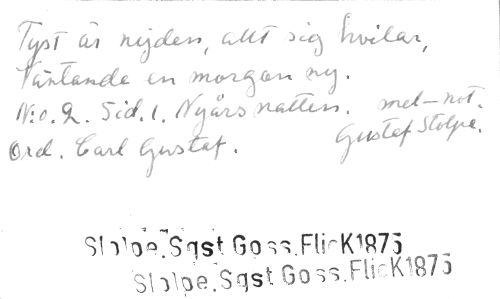 Tyst är nejden, allt sig hvilar,
Väntande en morgon ny.
N:o. 2. Sid. 1. Nyårsnatten. mel-not.
Gustaf Stolpe.
Ord. Carl Gustaf.
Stolpe.Sgst Goss.FlicK1875
Stolpe.Sgst Goss.FlicK1875